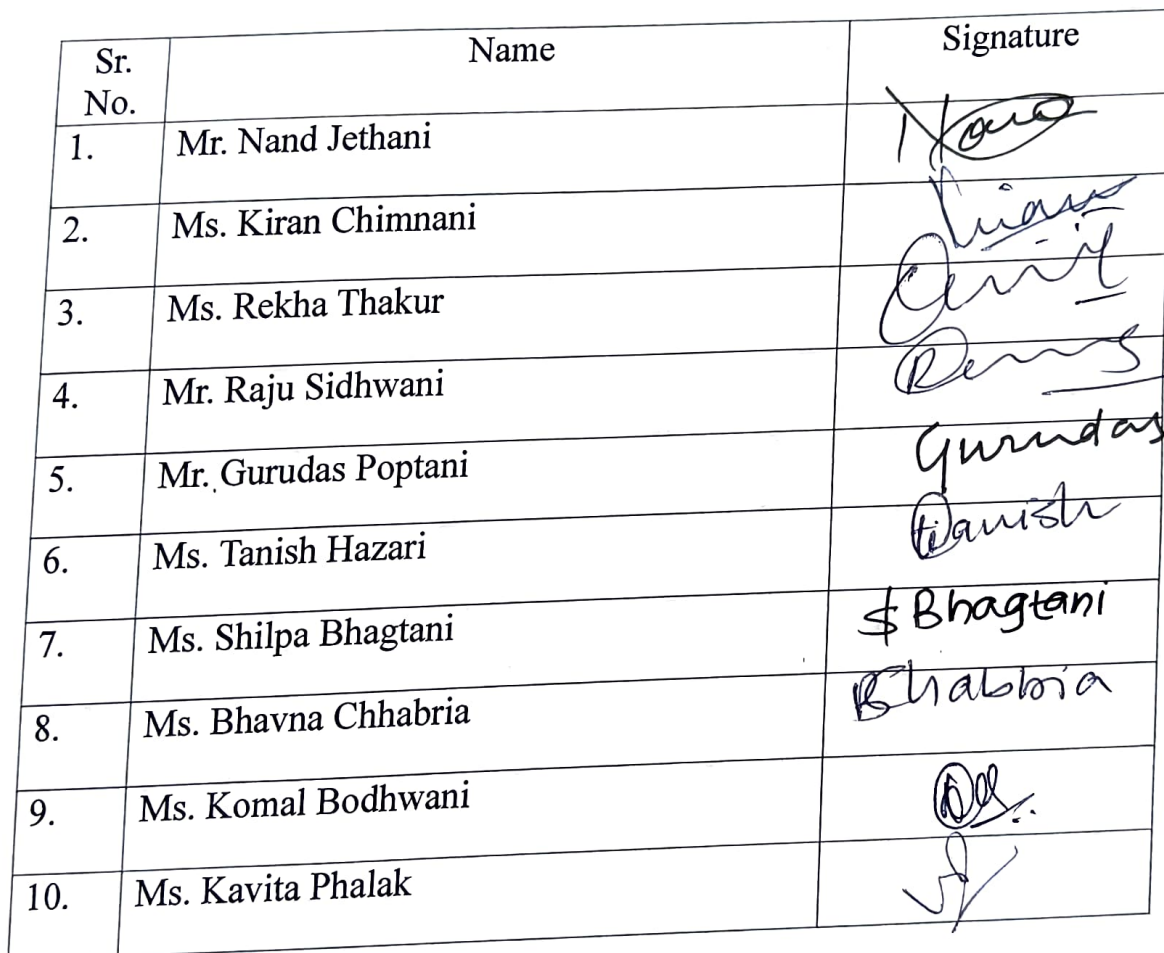 Sr. No. Name Signature
1. Mr. Nand Jethani
2. Ms. Kiran Chimnani
3. Ms. Rekha Thakur
4. Mr. Raju Sidhwani
5. Mr. Gurudas Poptani Gurudas
6. Ms. Tanish Hazari
7. Ms. Shilpa Bhagtani $ Bhagtani
8. Ms. Bhavna Chhabria
9. Ms. Komal Bodhwani
10. Ms. Kavita Phalak